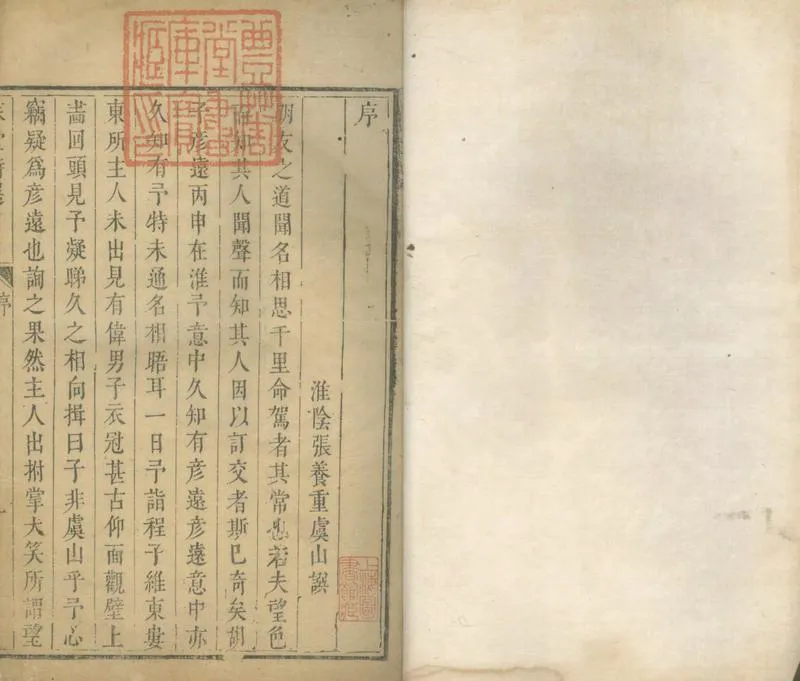 序
淮陰張養重虞山譔
朋友之道聞名相思千里命駕者其常也若夫望色
而知其人聞聲而知其人因以訂交者斯已奇矣胡
子彥遠丙申在淮予意中久知有彥遠彥遠意中亦
久知有予特未通名相晤耳一日予詣程子維東婁
東所主人未出見有偉男子衣冠甚古仰面觀壁上
畵回頭見予疑睇久之相向揖曰子非虞山乎予心
竊疑爲彥遠也詢之果然主人出拊掌大笑所謂望
序
豐華堂書庫寶藏印
上海圖書館藏